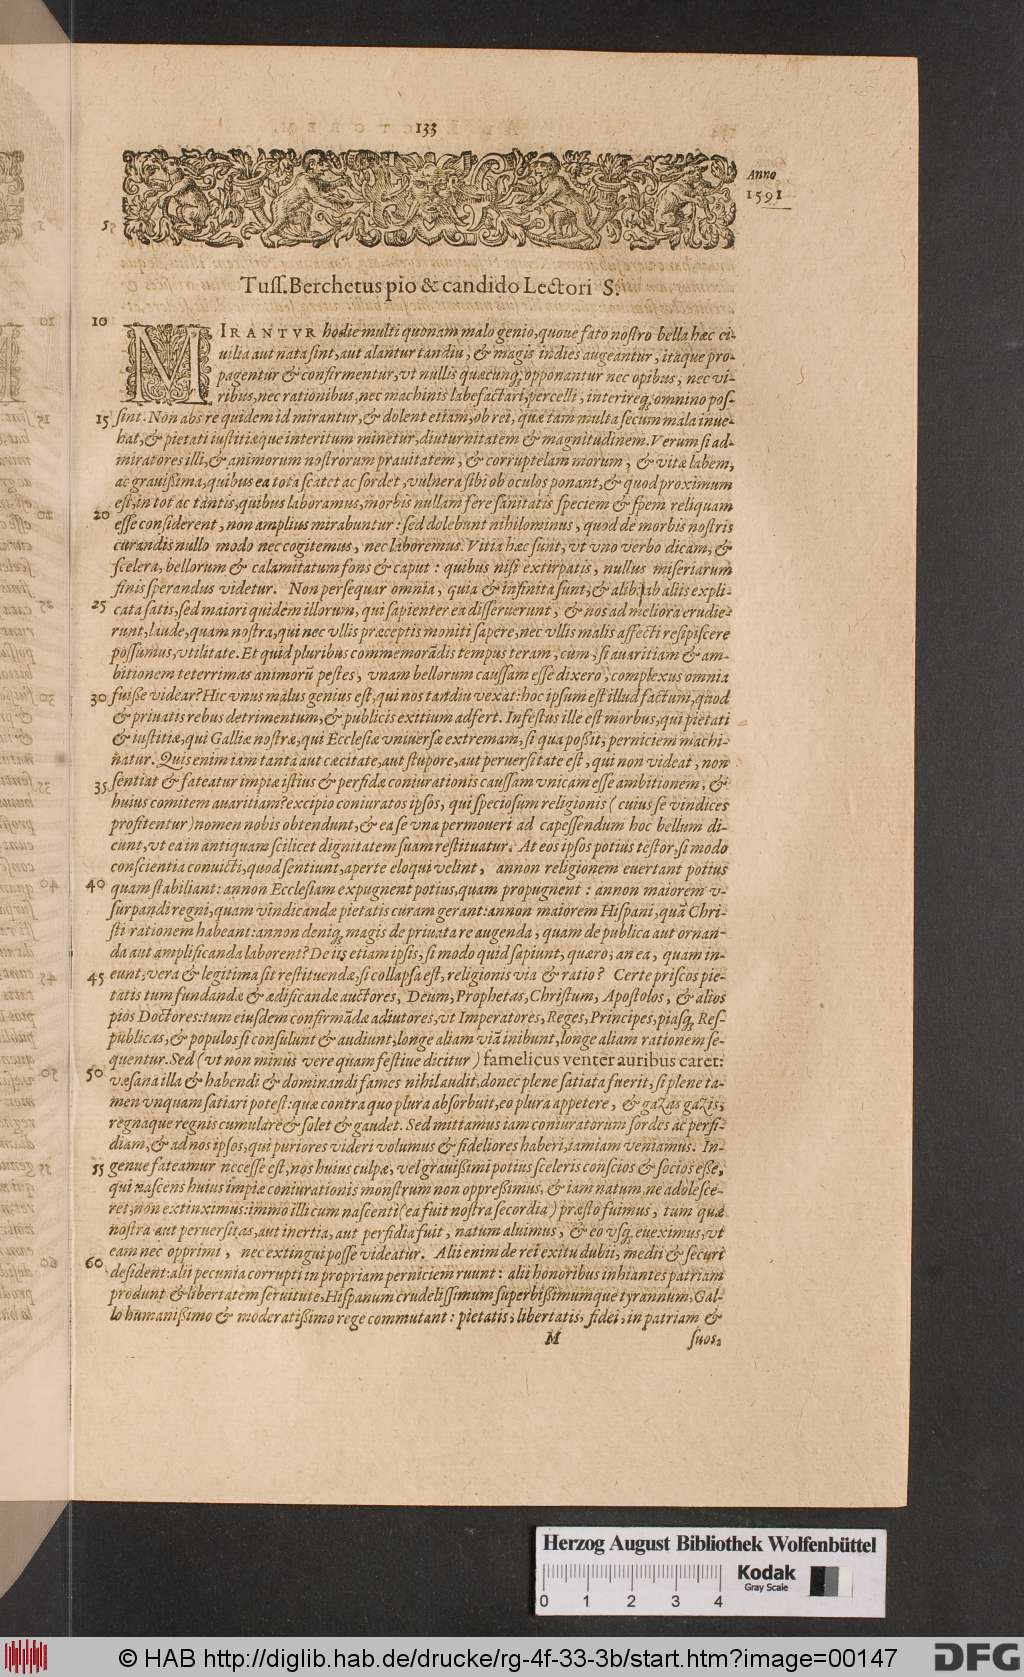 133
Anno
1591
5
Tuss. Berchetus pio & candido Lectori S.
10 MIRANTVR hodie multi quonam malo genio, quove fato nostro bella hæc ci-
uilia aut nata sint, aut alantur tandiu, & magis indies augeantur, itaque pro-
pagentur & confirmentur, vt nullis quæcunq; opponantur nec opibus, nec vi-
ribus, nec rationibus, nec machinis labefactari, percelli, interireq; omnino pos-
15 sint. Non abs re quidem id mirantur, & dolent etiam, ob rei, quæ tam multa secum mala inue-
hat, & pietati iustitiæque interitum minetur, diuturnitatem & magnitudinem. Verum si ad-
miratores illi, & animorum nostrorum prauitatem, & corruptelam morum, & vitæ labem,
ac grauißima, quibus ea tota scatet ac sordet, vulnera sibi ob oculos ponant, & quod proximum
est, in tot ac tantis, quibus laboramus, morbis nullam fere sanitatis speciem & spem reliquam
20 esse considerent, non amplius mirabuntur: sed dolebunt nihilominus, quod de morbis nostris
curandis nullo modo nec cogitemus, nec laboremus. Vitia hæc sunt, vt vno verbo dicam, &
scelera, bellorum & calamitatum fons & caput: quibus nisi extirpatis, nullus miseriarum
finis sperandus videtur. Non persequar omnia, quia & infinita sunt, & alibi ab aliis expli-
25 cata satis, sed maiori quidem illorum, qui sapienter ea disseruerunt, & nos ad meliora erudie-
runt, laude, quam nostra, qui nec vllis præceptis moniti sapere, nec vllis malis affecti resipiscere
possumus, vtilitate. Et quid pluribus commemorādis tempus teram, cùm, si auaritiam & am-
bitionem teterrimas animorū pestes, vnam bellorum caussam esse dixero, complexus omnia
30 fuiße videar? Hic vnus malus genius est, qui nos tandiu vexat: hoc ipsum est illud factum, quod
& priuatis rebus detrimentum, & publicis exitium adfert. Infestus ille est morbus, qui pietati
& iustitiæ, qui Galliæ nostræ, qui Ecclesiæ vniuersæ extremam, si qua poßit, perniciem machi-
natur. Quis enim iam tanta aut cæcitate, aut stupore, aut peruersitate est, qui non videat, non
35 sentiat & fateatur impiæ istius & perfidæ coniurationis caussam vnicam esse ambitionem, &
huius comitem auaritiam? excipio coniuratos ipsos, qui speciosum religionis (cuius se vindices
profitentur) nomen nobis obtendunt, & ea se vna permoueri ad capessendum hoc bellum di-
cunt, vt ea in antiquam scilicet dignitatem suam restituatur. At eos ipsos potius testor, si modo
conscientia conuicti, quod sentiunt, aperte eloqui velint, annon religionem euertant potius
40 quam stabiliant: annon Ecclesiam expugnent potius, quam propugnent: annon maiorem v-
surpandi regni, quam vindicandæ pietatis curam gerant: annon maiorem Hispani, quā Chri-
sti rationem habeant: annon deniq; magis de priuata re augenda, quam de publica aut ornan-
da aut amplificanda laborent? De iis etiam ipsis, si modo quid sapiunt, quæro, an ea, quam in-
45 eunt, vera & legitima sit restituendæ, si collapsa est, religionis via & ratio? Certe priscos pie-
tatis tum fundandæ & ædificandæ auctores, Deum, Prophetas, Christum, Apostolos, & alios
pios Doctores: tum eiusdem confirmādæ adiutores, vt Imperatores, Reges, Principes, piasq; Res-
publicas, & populos si consulunt & audiunt, longe aliam viā inibunt, longe aliam rationem se-
quentur. Sed (vt non minus vere quam festiue dicitur) famelicus venter auribus caret:
50 væsana illa & habendi & dominandi fames nihil audit, donec plene satiata fuerit, si plene ta-
men vnquam satiari potest: quæ contra quo plura absorbuit, eo plura appetere, & gazas gazis,
regnaque regnis cumulare & solet & gaudet. Sed mittamus iam coniuratorum sordes ac perfi-
diam, & ad nos ipsos, qui puriores videri volumus & fideliores haberi, iam iam veniamus. In-
55 genue fateamur necesse est, nos huius culpæ, vel grauißimi potius sceleris conscios & socios eße,
qui nascens huius impiæ coniurationis monstrum non oppreßimus, & iam natum, ne adolesce-
ret, non extinximus: immo illi cum nascenti (ea fuit nostra secordia) præsto fuimus, tum quæ
nostra aut peruersitas, aut inertia, aut perfidia fuit, natum aluimus, & eo vsq; eueximus, vt
eam nec opprimi, nec extingui posse videatur. Alii enim de rei exitu dubii, medii & securi
60 desident: alii pecunia corrupti in propriam perniciem ruunt: alii honoribus inhiantes patriam
produnt & libertatem seruitute, Hispanum crudelissimum superbißimumque tyrannum, Gal-
lo humanißimo & moderatißimo rege commutant: pietatis, libertatis, fidei, in patriam &
M suos,
Herzog August Bibliothek Wolfenbüttel
0 1 2 3 4
Kodak
Gray Scale
© HAB http://diglib.hab.de/drucke/rg-4f-33-3b/start.htm?image=00147
DFG